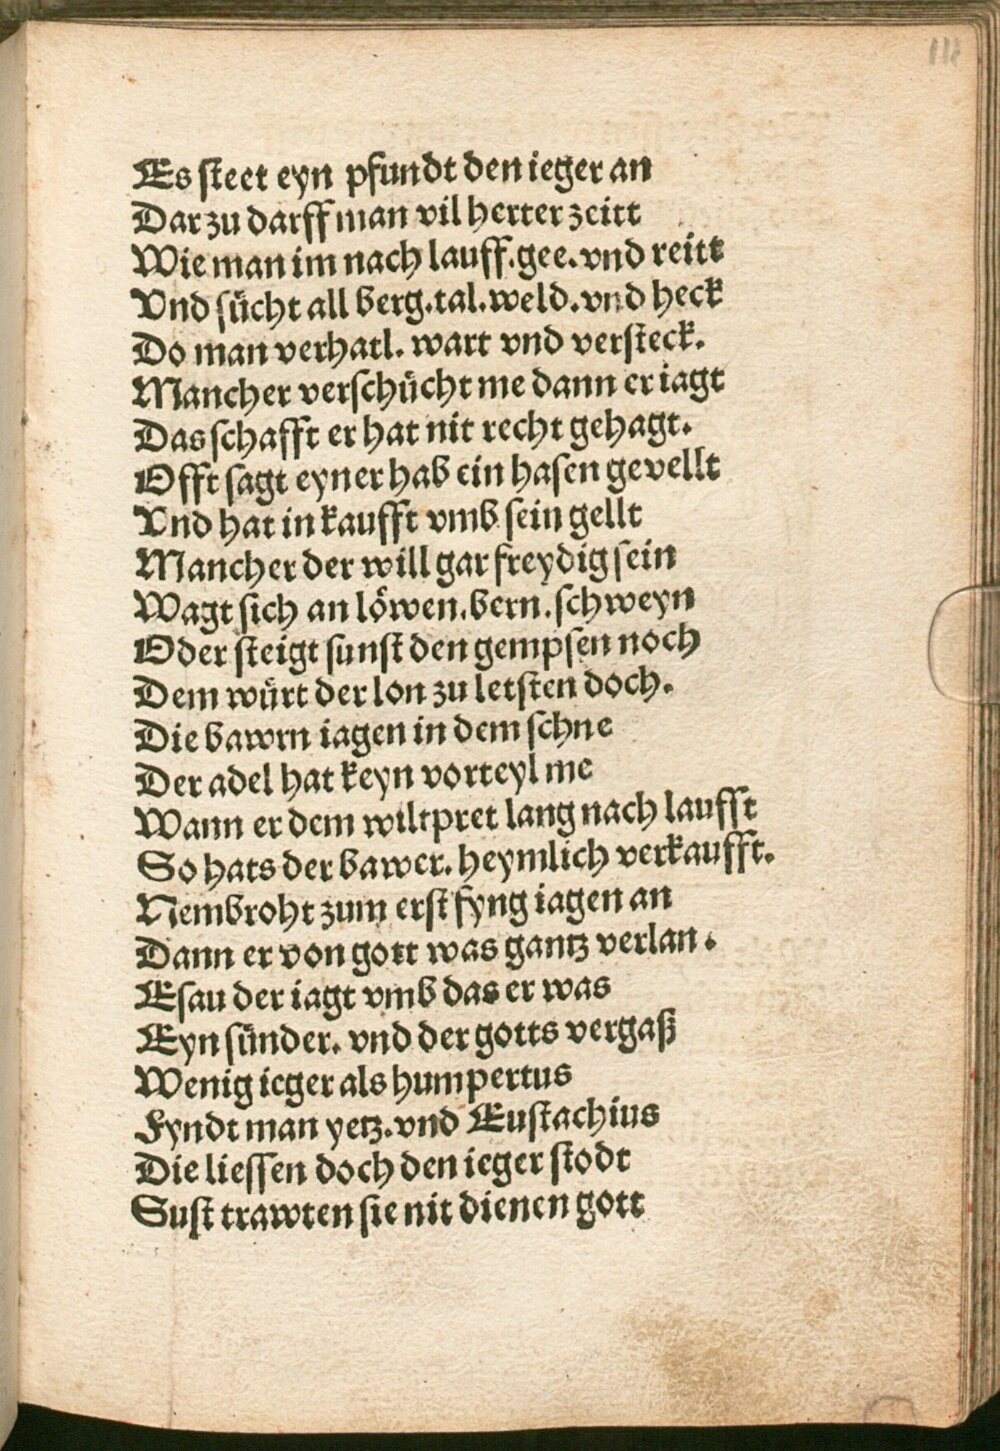 111
Es steet eyn pfundt den ieger an
Dar zu darff man vil herter zeitt
Wie man im nach lauff.gee.vnd reitt
Vnd sücht all berg.tal.weld.vnd heck
Do man verhatl. wart vnd versteck.
Mancher verschücht me dann er iagt
Das schafft er hat nit recht gehagt.
Offt sagt eyner hab ein hasen gevellt
Vnd hat in kaufft vmb sein gellt
Mancher der will gar freydig sein
Wagt sich an löwen.bern.schweyn
Oder steigt sunst den gempsen noch
Dem würt der lon zu letsten doch.
Die bawrn iagen in dem schne
Der adel hat keyn vorteyl me
Wann er dem wiltpret lang nach laufft
So hats der bawer. heymlich verkaufft.
Nembroht zum erst fyng iagen an
Dann er von gott was gantz verlan.
Esau der iagt vmb das er was
Eyn sünder. vnd der gotts vergaß
Wenig ieger als humpertus
Fyndt man yetz.vnd Eustachius
Die liessen doch den ieger stodt
Sust trawten sie nit dienen gott